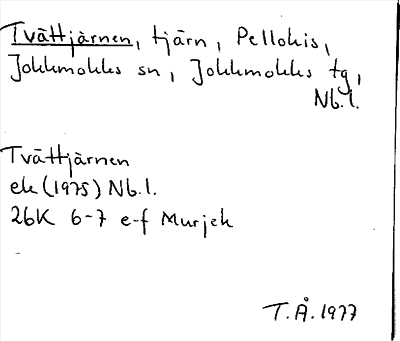 Tvättjärnen, tjärn, Pellokis,
Jokkmokks sn, Jokkmokks tg,
Nb.l.
Tvättjärnen
ek (1975) Nb.l.
26K 6-7 e-f Murjek
T.Å. 1977